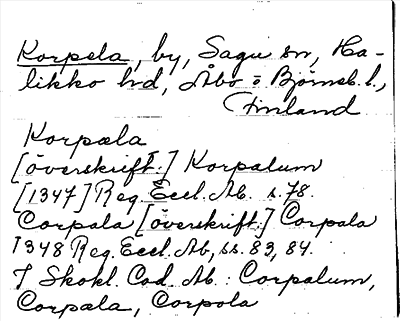 Korpela, by, Sagu sn, Ha-
likko hd, Åbo o Björneb. l.,
Finland
Korpæla
[överskrift:] Korpalum
[1347] Reg. Eccl. Ab. s. 78.
Corpala [överskrift:] Corpala
1348 Reg. Eccl. Ab, ss. 83, 84.
I Skokl. Cod. Ab.: Corpalum,
Corpæla, Corpola